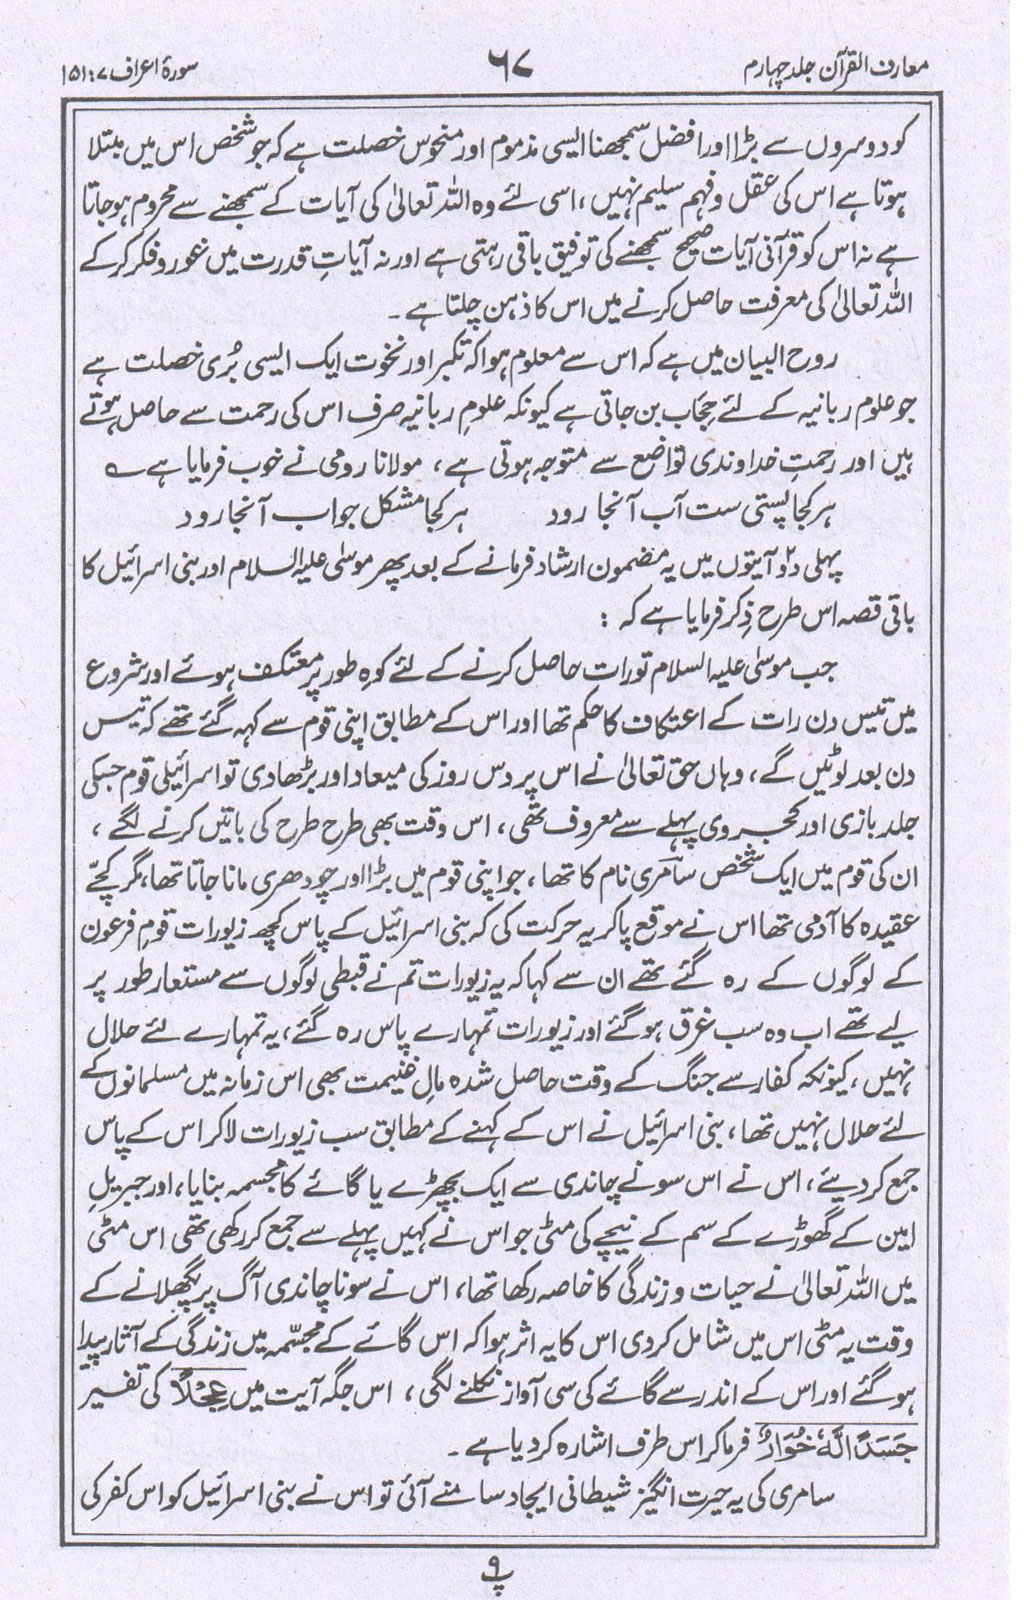 معارف القرآن جلد چہارم ۶۷ سورۂ اعراف ۷ : ۱۵۱
کو دوسروں سے بڑا اور افضل سمجھنا ایسی مذموم اور منحوس خصلت ہے کہ جو شخص اس میں مبتلا
ہوتا ہے اس کی عقل و فہم سلیم نہیں، اسی لئے وہ اللہ تعالیٰ کی آیات کے سمجھنے سے محروم ہو جاتا
ہے نہ اس کو قرآنی آیات صحیح سمجھنے کی توفیق باقی رہتی ہے اور نہ آیاتِ قدرت میں غور و فکر کر کے
اللہ تعالیٰ کی معرفت حاصل کرنے میں اس کا ذہن چلتا ہے ۔
روح البیان میں ہے کہ اس سے معلوم ہوا کہ تکبر اور نخوت ایک ایسی بُری خصلت ہے
جو علوم ربانیہ کے لئے حجاب بن جاتی ہے کیونکہ علومِ ربانیہ صرف اس کی رحمت سے حاصل ہوتے
ہیں اور رحمتِ خداوندی تواضع سے متوجہ ہوتی ہے، مولانا رومی نے خوب فرمایا ہے ؎
ہر کجا پستی ست آب آنجا رود ہر کجا مشکل جواب آنجا رود
پہلی دو۲ آیتوں میں یہ مضمون ارشاد فرمانے کے بعد پھر موسیٰ علیہ السلام اور بنی اسرائیل کا
باقی قصہ اس طرح ذکر فرمایا ہے کہ :
جب موسیٰ علیہ السلام تورات حاصل کرنے کے لئے کوہِ طور پر معتکف ہوئے اور شروع
میں تیس دن رات کے اعتکاف کا حکم تھا اور اس کے مطابق اپنی قوم سے کہہ گئے تھے کہ تیس
دن بعد لوٹیں گے، وہاں حق تعالیٰ نے اس پر دس روز کی میعاد اور بڑھا دی تو اسرائیلی قوم جسکی
جلد بازی اور کجروی پہلے سے معروف تھی، اس وقت بھی طرح طرح کی باتیں کرنے لگے،
ان کی قوم میں ایک شخص سامری نام کا تھا، جو اپنی قوم میں بڑا اور چودھری مانا جاتا تھا، مگر کچے
عقیدہ کا آدمی تھا اس نے موقع پا کر یہ حرکت کی کہ بنی اسرائیل کے پاس کچھ زیورات قومِ فرعون
کے لوگوں کے رہ گئے تھے ان سے کہا کہ یہ زیورات تم نے قبطی لوگوں سے مستعار طور پر
لیے تھے اب وہ سب غرق ہو گئے اور زیورات تمہارے پاس رہ گئے، یہ تمہارے لئے حلال
نہیں، کیونکہ کفار سے جنگ کے وقت حاصل شدہ مالِ غنیمت بھی اس زمانہ میں مسلمانوں کے
لئے حلال نہیں تھا، بنی اسرائیل نے اس کے کہنے کے مطابق سب زیورات لا کر اس کے پاس
جمع کر دیئے، اس نے اس سونے چاندی سے ایک بچھڑے یا گائے کا مجسمہ بنایا، اور جبریلِ
امین کے گھوڑے کے سم کے نیچے کی مٹی جو اس نے کہیں پہلے سے جمع کر رکھی تھی اس مٹی
میں اللہ تعالیٰ نے حیات و زندگی کا خاصہ رکھا تھا، اس نے سونا چاندی آگ پر پگھلانے کے
وقت یہ مٹی اس میں شامل کر دی اس کا یہ اثر ہوا کہ اس گائے کے مجسّمہ میں زندگی کے آثار پیدا
ہو گئے اور اس کے اندر سے گائے کی سی آواز نکلنے لگی، اس جگہ آیت میں عِجْلًا کی تفسیر
جَسَدًا لَّهٗ خُوَارٌ فرما کر اس طرف اشارہ کر دیا ہے ۔
سامری کی یہ حیرت انگیز شیطانی ایجاد سامنے آئی تو اس نے بنی اسرائیل کو اس کفر کی
پ ۹